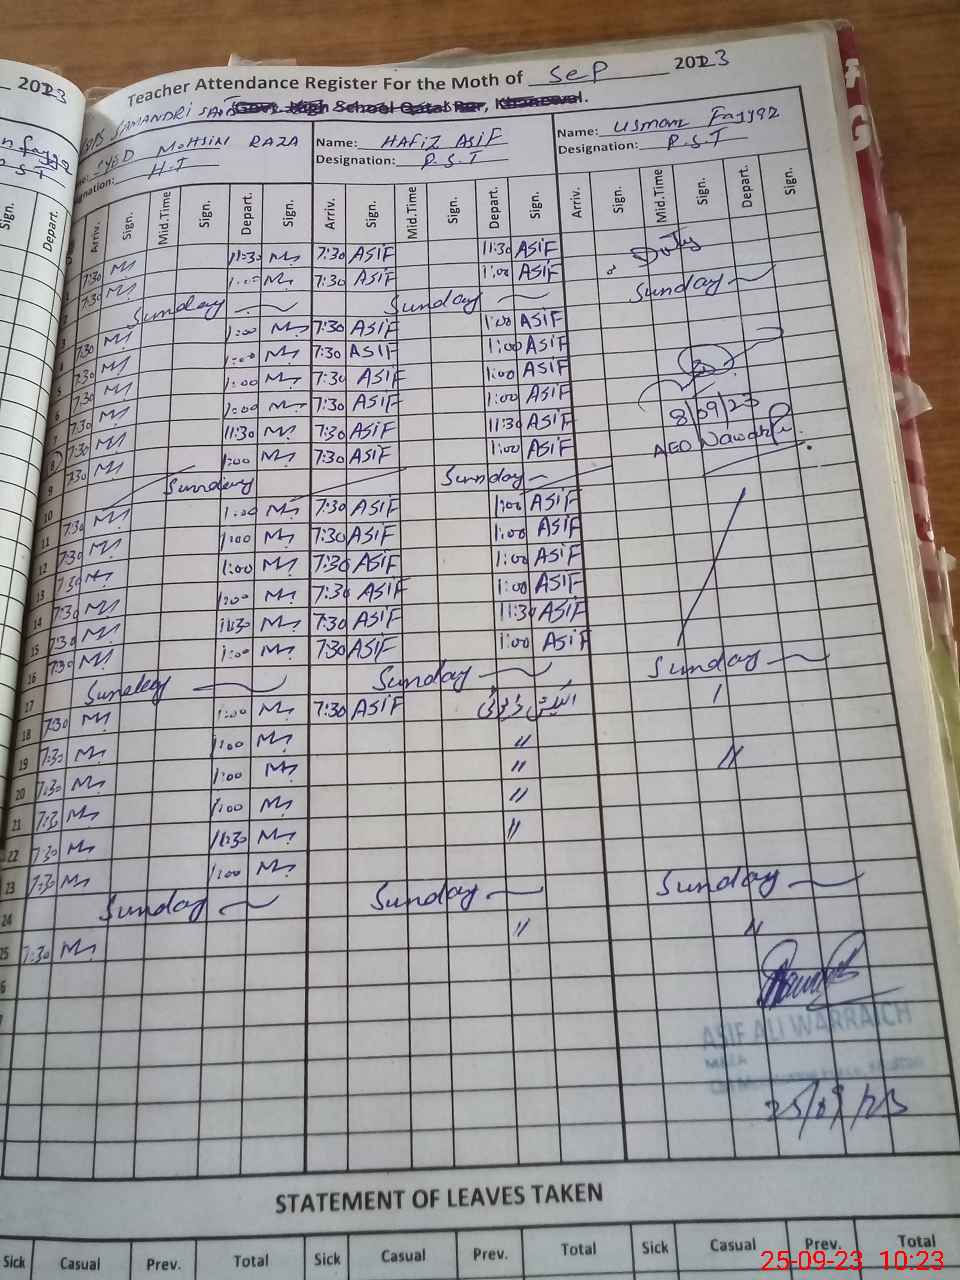 2023
Teacher Attendance Register For the Moth of Sep 2023
SAMANDRI Govt. High School Qatal Pur, Khanewal.
SYED MOHSIN RAZA Name: HAFIZ ASIF Name: Usman Fayyaz
Designation: H.T Designation: P.S.T Designation: P.S.T
Sign. Depart. Arriv. Sign. Mid.Time Sign. Depart. Sign. Arriv. Sign. Mid.Time Sign. Depart. Sign. Arriv. Sign. Mid.Time Sign. Depart. Sign.
1 7:30 M 11:30 M 7:30 ASIF 11:30 ASIF Duty
2 7:30 M 1:00 M 7:30 ASIF 1:00 ASIF
3 Sunday Sunday Sunday
4 7:30 M 1:00 M 7:30 ASIF 1:00 ASIF
5 7:30 M 1:00 M 7:30 ASIF 1:00 ASIF
6 7:30 M 1:00 M 7:30 ASIF 1:00 ASIF
7 7:30 M 1:00 M 7:30 ASIF 1:00 ASIF 8/09/23
8 7:30 M 11:30 M 7:30 ASIF 11:30 ASIF AEO
9 7:30 M 1:00 M 7:30 ASIF 1:00 ASIF
10 Sunday Sunday
11 7:30 M 1:00 M 7:30 ASIF 1:00 ASIF
12 7:30 M 1:00 M 7:30 ASIF 1:00 ASIF
13 7:30 M 1:00 M 7:30 ASIF 1:00 ASIF
14 7:30 M 1:00 M 7:30 ASIF 1:00 ASIF
15 7:30 M 11:30 M 7:30 ASIF 11:30 ASIF
16 7:30 M 1:00 M 7:30 ASIF 1:00 ASIF
17 Sunday Sunday Sunday
18 7:30 M 1:00 M 7:30 ASIF
19 7:30 M 1:00 M " "
20 7:30 M 1:00 M "
21 7:30 M 1:00 M "
22 7:30 M 11:30 M "
23 7:30 M 1:00 M
24 Sunday Sunday Sunday
25 7:30 M " "
ASIF ALI WARRAICH
25/09/23
STATEMENT OF LEAVES TAKEN
Sick Casual Prev. Total Sick Casual Prev. Total Sick Casual Prev. Total
25-09-23 10:23